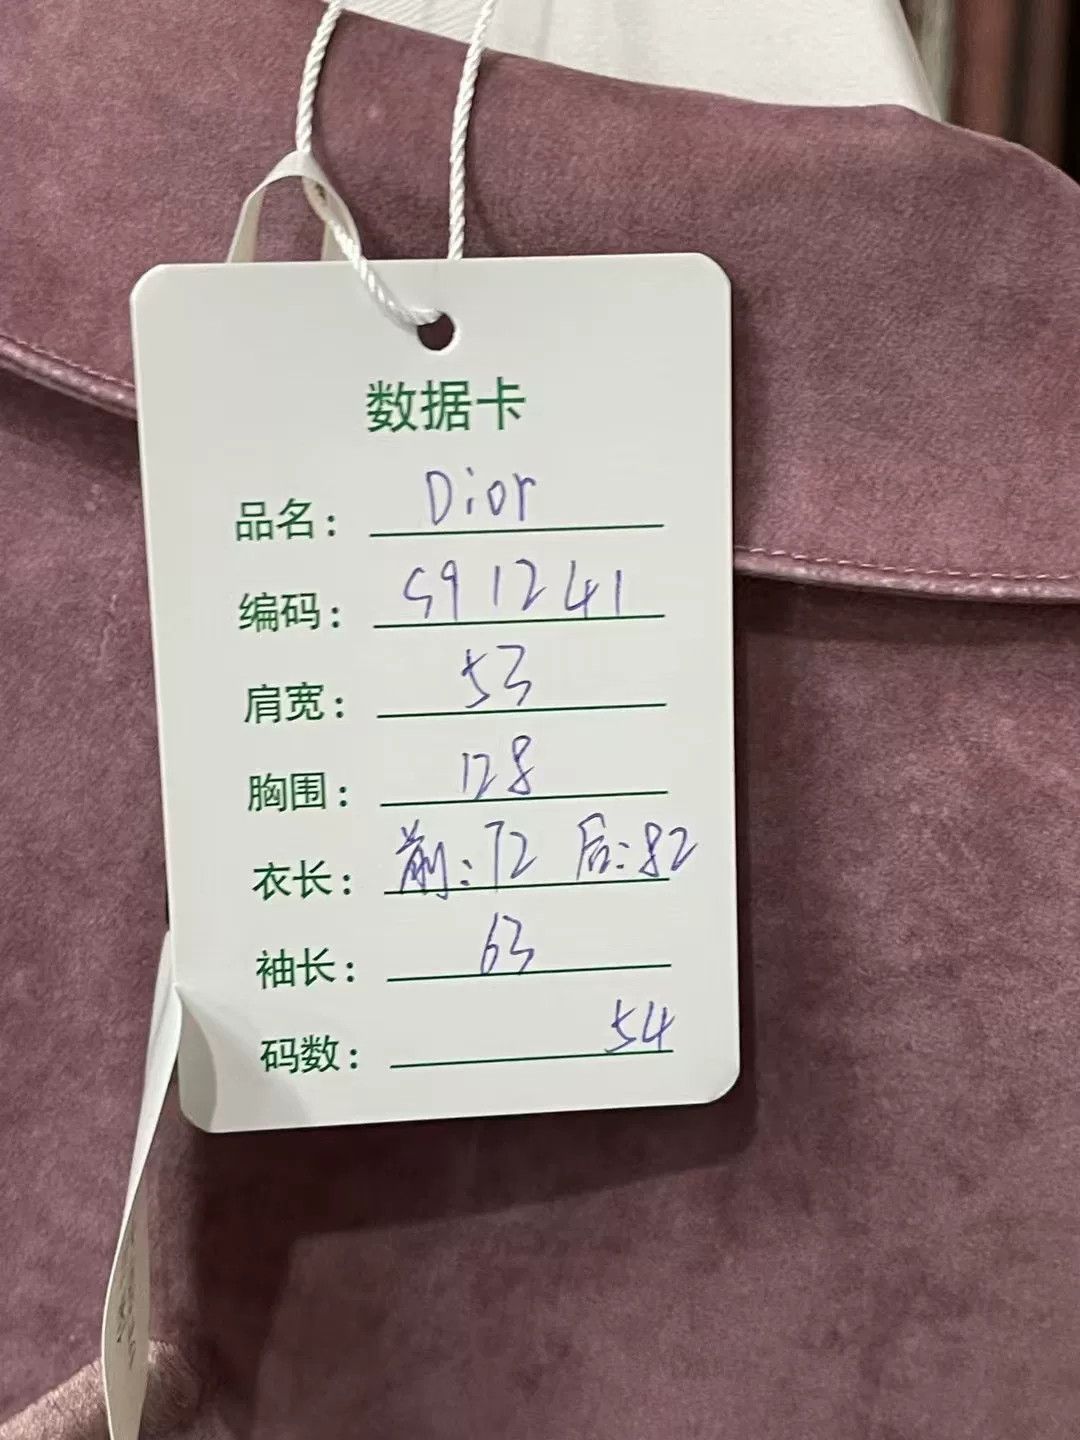 数据卡
品名: Dior
编码: S91241
肩宽: 53
胸围: 128
衣长: 前:72 后:82
袖长: 63
码数: 54